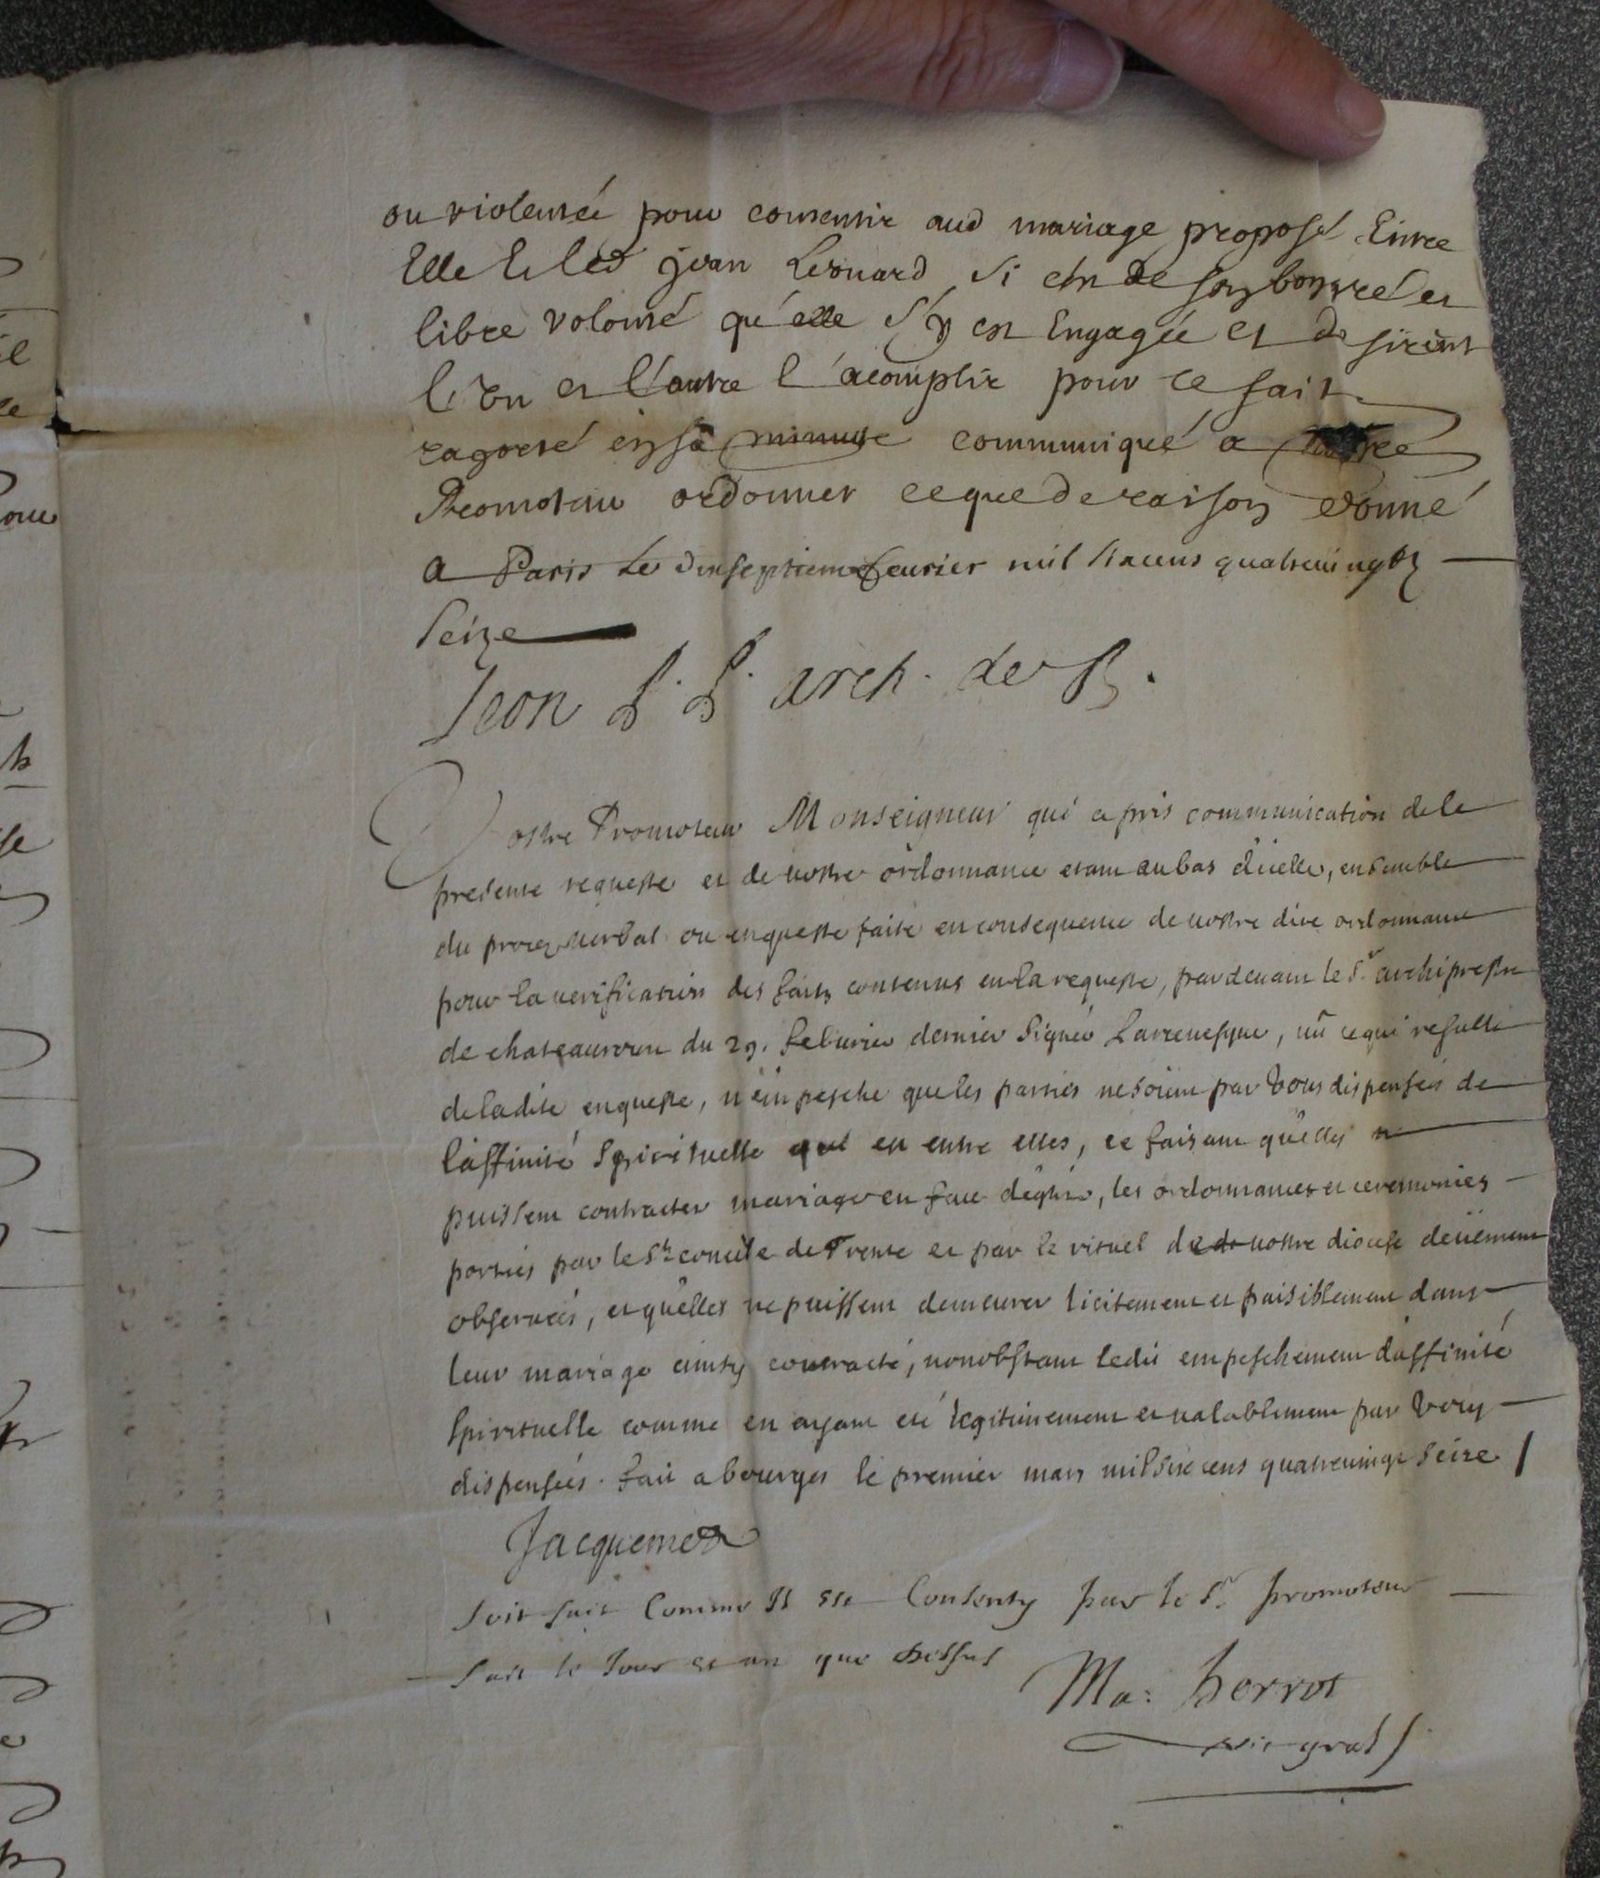 ou violentée pour consentir aud mariage proposé Entre
Elle & led jean Leonard si c'en de son bon gré et
libre volonté qu'elle s'y est Engagée et desirent
l'un et l'autre l'acomplir pour ce fait
raporté en sa minutte communiqué a nostre
Promoteur ordonner ce que de raison donné
a Paris Le dixseptieme feurier mil six cens quatreuingtz
seize
Leon P. P. arch. de B.
Vostre Promoteur Monseigneur qui a pris communication de la
presente requeste et de vostre ordonnance etant au bas d'icelle, ensemble
du procez verbal ou enqueste faite en consequence de vostre dite ordonnance
pour la verification des faits contenus en la requeste, pardeuant le Sr archiprestre
de chateauroux du 29. feburier dernier signée Larreuesque, uû ce qui resulte
de ladite enqueste, n'empesche que les parties ne soient par vous dispensées de
l'affinité spirituelle qui est entre elles, ce faisant qu'elles ne
puissent contracter mariage en face d'eglise, les ordonnances et ceremonies
portées par le St concile de Trente et par le rituel de vostre diocese deüement
obseruées, et qu'elles ne puissent demeurer licitement et paisiblement dans
leur mariage ainsy contracté, nonobstant ledit empeschement d'affinité
spirituelle comme en ayant eté legitimement et ualablement par vous
dispensées. fait a bourges le premier mars mil six cens quatreuingt seize /
Jacquemet
soit fait Comme Il est Consenty par le Sr promoteur
fait le Jour et an que dessus
Ma: herrot
vic gral